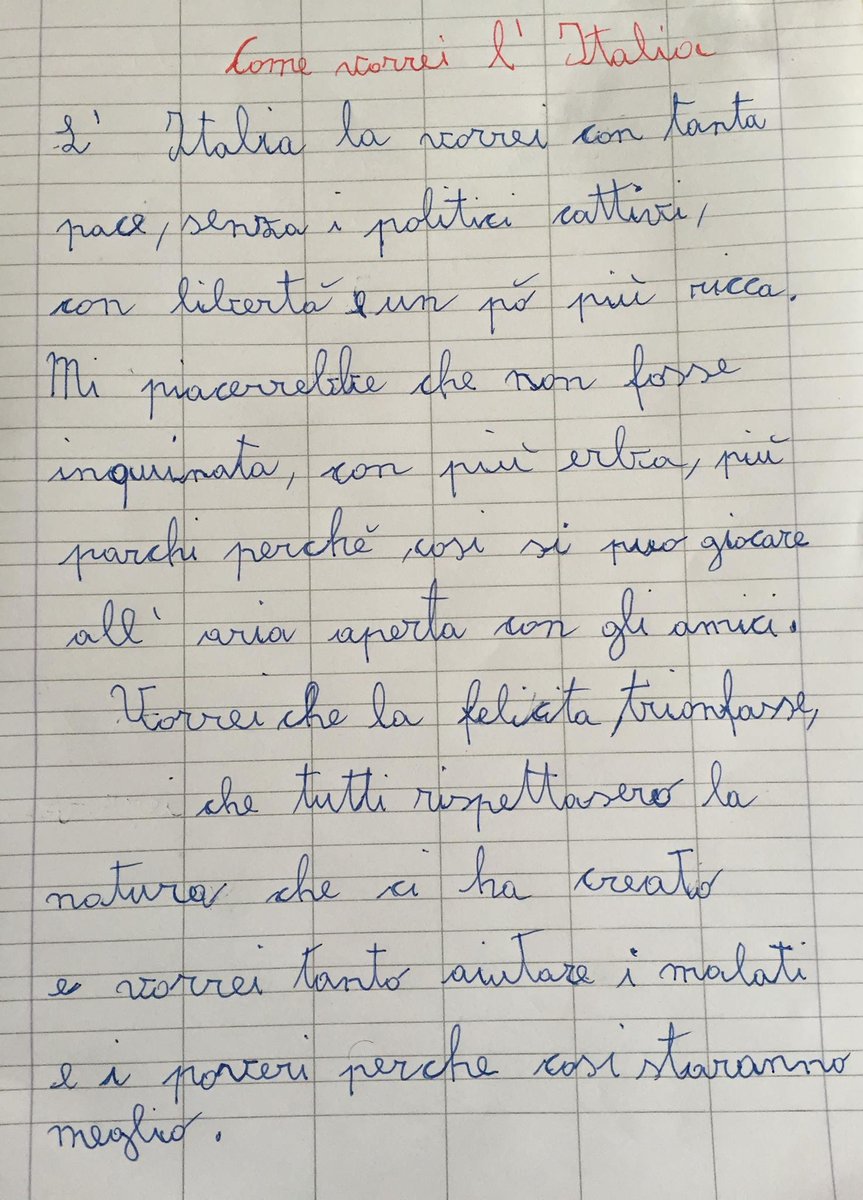 Come vorrei l'Italia
L'Italia la vorrei con tanta
pace, senza i politici cattivi,
con libertà e un pò più ricca.
Mi piacerrebbe che non fosse
inquinata, con più erba, più
parchi perchè, cosi si può giocare
all'aria aperta con gli amici.
Vorrei che la felicita trionfasse,
che tutti rispettasero la
natura che ci ha creato
e vorrei tanto aiutare i malati
e i poveri perche cosi staranno
meglio.